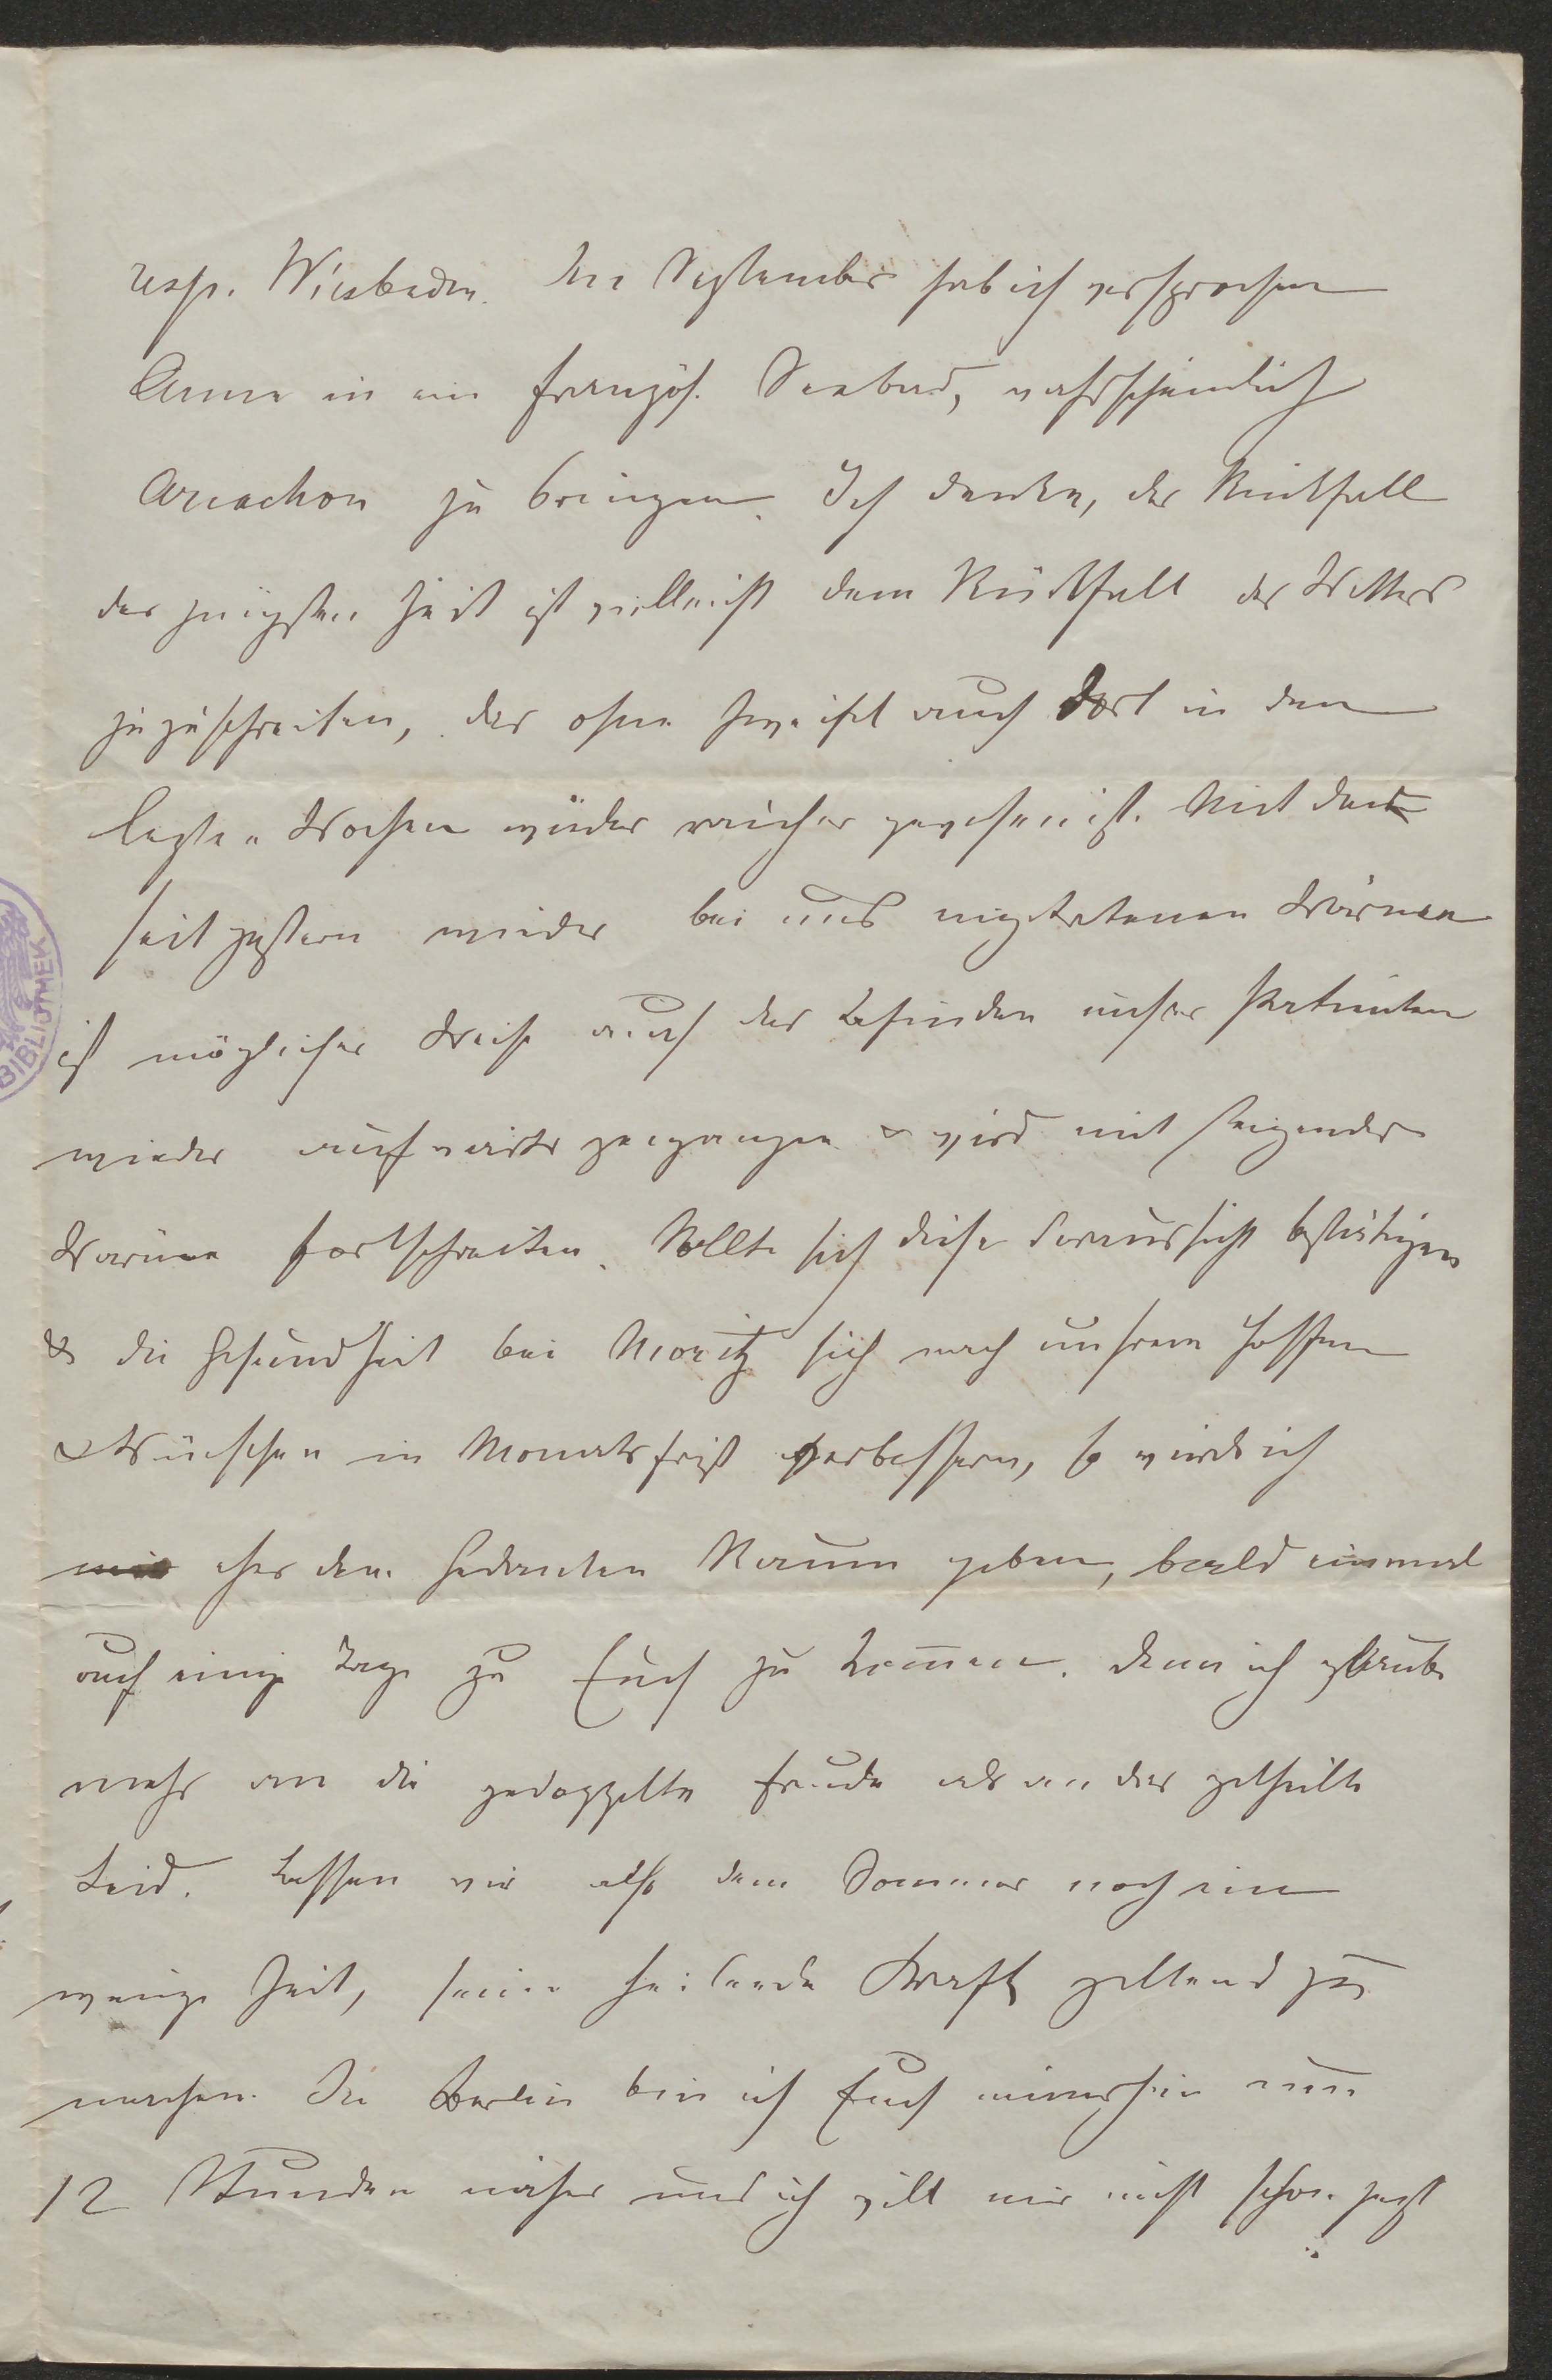 resp. Wiesbaden. Im September hab ich versprochen
Anna in ein französ. Seebad, wahrscheinlich
Arcachon zu bringen. Ich denke, der Rückfall
der jüngsten Zeit ist vielleicht dem Rückfall des Wetters
zuzuschreiben, das ohne Zweifel auch dort in den
letzten Wochen wieder rauher gewesen ist. Mit der
seit gestern wieder bei uns eingetretenen Wärme
ist möglicher Weise auch das Befinden unsres Patienten
wieder aufwärts gegangen & wird mit steigender
Wärme fortschreiten. Sollte sich diese Voraussicht bestätigen
& die Gesundheit bei Moritz sich nach unsrem Hoffen
& Wünschen in Monatsfrist verbessern, so würde ich
eher dem Gedanken Raum geben, bald einmal
auf einige Tage zu Euch zu kommen. Denn ich glaube
mehr an die gedoppelte Freude als an das getheilte
Leid. Lassen wir also dem Sommer noch ein
wenig Zeit, seine heilende Kraft geltend zu
machen. In Berlin bin ich Euch immerhin um
12 Stunden näher und ich will mir nicht schon jetzt
BIBLIOTHEK